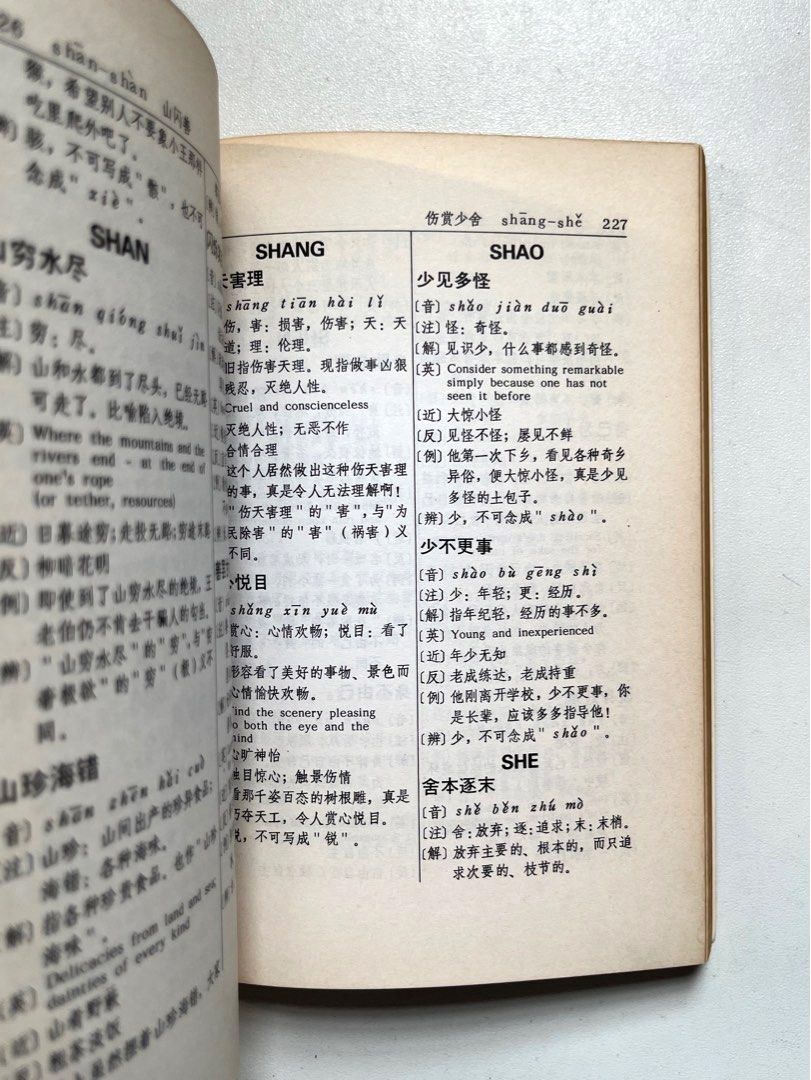 26 shān-shàn 山闪善
猴，希望别人不要象小王那样
吃里爬外吧了。
骸，不可写成"骸"，也不可
念成"xiè"。
SHAN
山穷水尽
shān qióng shuǐ jìn
穷：尽。
山和水都到了尽头，已经无路
可走了。比喻陷入绝境。
Where the mountains and the
rivers end - at the end of
one's rope
(or tether, resources)
日暮途穷；走投无路；穷途末路
柳暗花明
即使到了山穷水尽的绝境，王
老伯仍不肯去干骗人的勾当。
"山穷水尽"的"穷"，与"穷
同。
山珍海错
shān zhēn hǎi cuò
山珍：山间出产的珍异食品；
海错：各种海味。
指各种珍贵食品。也作"山珍
海味"。
Delicacies from land and sea,
dainties of every kind
山肴野蔌
粗茶淡饭
伤赏少舍 shāng-shě 227
SHANG
天害理
shāng tiān hài lǐ
伤，害：损害，伤害；天：天
道；理：伦理。
旧指伤害天理。现指做事凶狠
残忍，灭绝人性。
Cruel and conscienceless
灭绝人性；无恶不作
合情合理
这个人居然做出这种伤天害理
的事，真是令人无法理解啊！
"伤天害理"的"害"，与"为
民除害"的"害"（祸害）义
不同。
心悦目
shǎng xīn yuè mù
赏心：心情欢畅；悦目：看了
舒服。
形容看了美好的事物、景色而
心情愉快欢畅。
Find the scenery pleasing
to both the eye and the
mind
心旷神怡
触目惊心；触景伤情
看那千姿百态的树根雕，真是
巧夺天工，令人赏心悦目。
悦，不可写成"锐"。
SHAO
少见多怪
〔音〕shǎo jiàn duō guài
〔注〕怪：奇怪。
〔解〕见识少，什么事都感到奇怪。
〔英〕Consider something remarkable
simply because one has not
seen it before
〔近〕大惊小怪
〔反〕见怪不怪；屡见不鲜
〔例〕他第一次下乡，看见各种奇乡
异俗，便大惊小怪，真是少见
多怪的土包子。
〔辨〕少，不可念成"shào"。
少不更事
〔音〕shào bù gēng shì
〔注〕少：年轻；更：经历。
〔解〕指年纪轻，经历的事不多。
〔英〕Young and inexperienced
〔近〕年少无知
〔反〕老成练达，老成持重
〔例〕他刚离开学校，少不更事，你
是长辈，应该多多指导他！
〔辨〕少，不可念成"shǎo"。
SHE
舍本逐末
〔音〕shě běn zhú mò
〔注〕舍：放弃；逐：追求；末：末梢。
〔解〕放弃主要的、根本的，而只追
求次要的、枝节的。